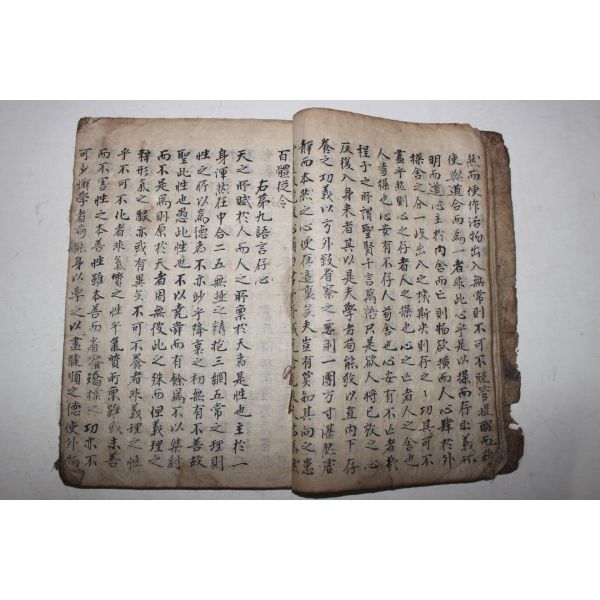 然而便作活物出入無常則不可不照管提醒而
使與道合而為一者非此心乎是以操而存
明而道心主於內舍而亡則物欲橫而人心肆於外
操舍之分一出入之機斯決則存之之功其可不
盡乎然則心之存者人之操也心之亡者人之舍也
人苟操也心安有不存人苟舍也心安有不亡者哉
程子之所謂聖賢千言萬語只是欲人將已放之心
反復入身來者其以是夫學者苟能敬以直內下存
養之功義以方外致省察之意則一團方寸湛然虛
靜而本然之心便在這裏矣夫豈有莫知其向之患
百體從令
右第九語言存心
天之所賦於人而人之所稟於天者是性也主於一
身渾然在中合二五無極之精抱三綱五常之理則
性之所以為德者不亦妙乎降衷之初無有不善故
聖此性也愚此性也不以堯舜而有餘焉不以桀紂
而不足焉則原於天者固無彼此之殊而但義理之
釋形氣之駁亦或有異矣不可不養者非義理之性
乎不可不化者非氣質之性乎氣質所稟雖或未善
而不害性之本善性雖本善而省察矯揉之功亦不
可少懈學者苟能身以率之以盡健順之德使外物